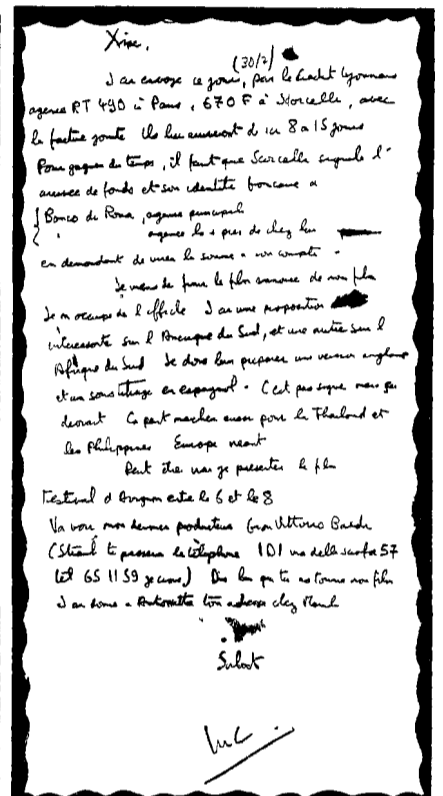 (30/7)
J'ai envoyé ce jour, par le Crédit Lyonnais
agence RT 490 à Paris, 670 F à Scarcelle, avec
la facture jointe Ils lui enverront d'ici 8 à 15 jours
Pour gagner du temps, il faut que Scarcelle signale l'
arrivée de fonds et son identité bancaire à
Banco di Roma, agence principale
agence la + près de chez lui
en demandant de virer la somme à son compte.
Je viens de finir le film annonce de mon film
Je m'occupe de l'affiche J'ai une proposition
intéressante sur l'Amérique du Sud, et une autre sur l'
Afrique du Sud Je dois leur préparer une version anglaise
et un sous titrage en espagnol. C'est pas signé mais ça
devrait Ça peut marcher aussi pour la Thailand et
les Philippines Europe néant
Peut être vais je présenter le film
Festival d'Avignon entre le 6 et le 8
Va voir mon dernier producteur Gian Vittorio Baldi
te passera le téléphone 101 via della 57
tel 65 11 59 je crois) Dis lui que tu as tourné mon film
J'ai donné à Antonietta ton adresse chez
Salut
Luc